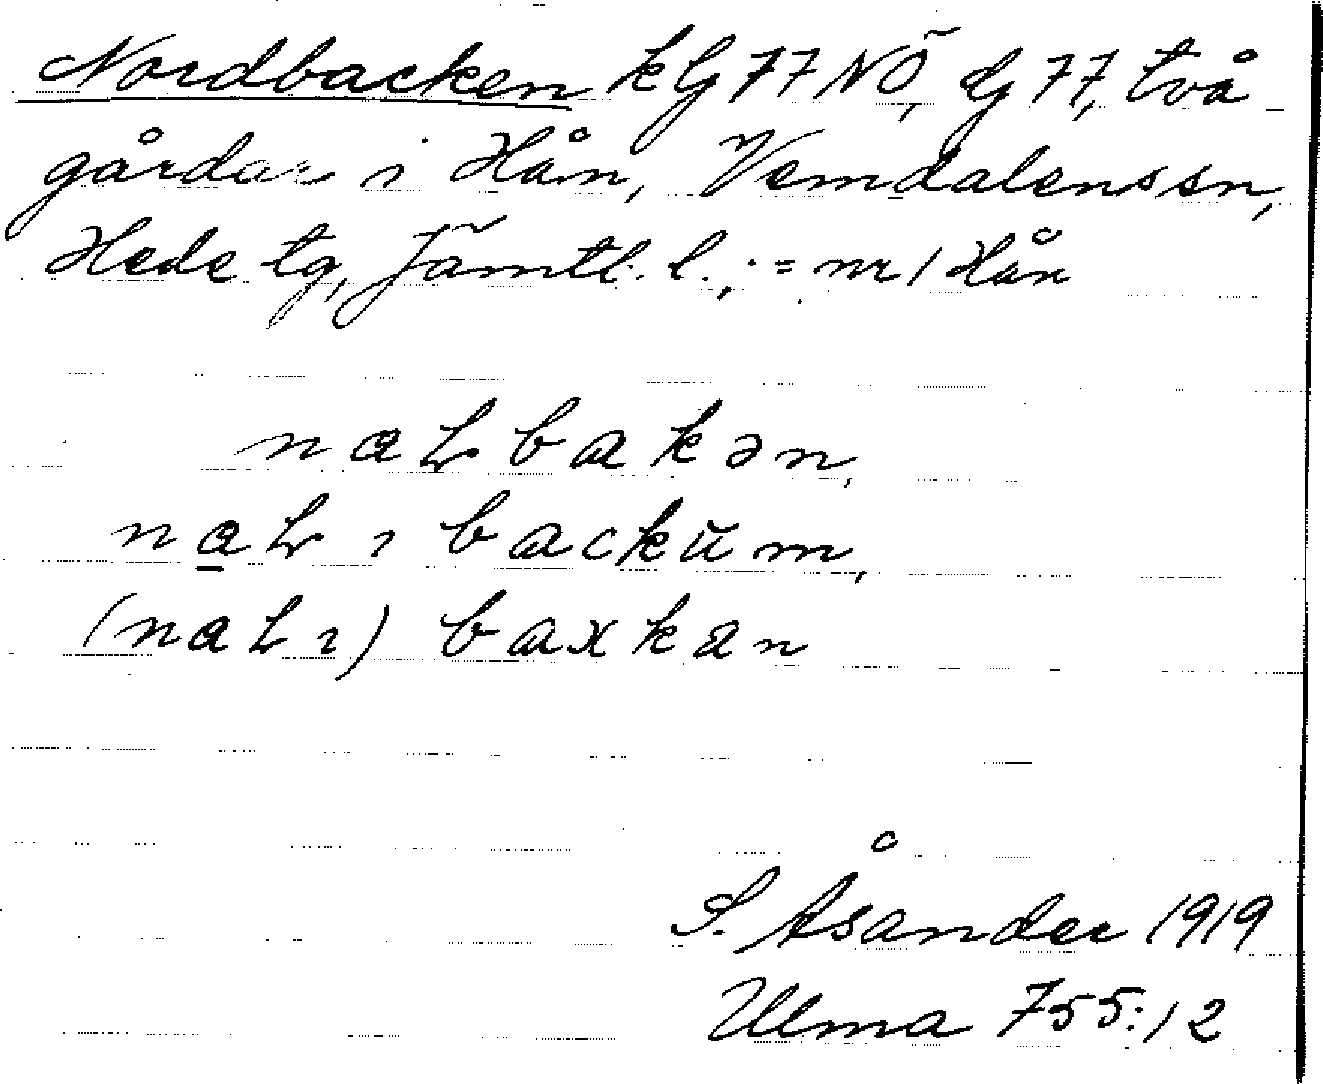 Nordbacken kG 77 NÖ, lG 77, två
gårdar i Hån, Vemdalens sn,
Hede tg, Jämtl. l.; = nr 1 Hån
bakən,
ı backŭm,
baxkan
S. Åsander 1919
Ulma 755:12